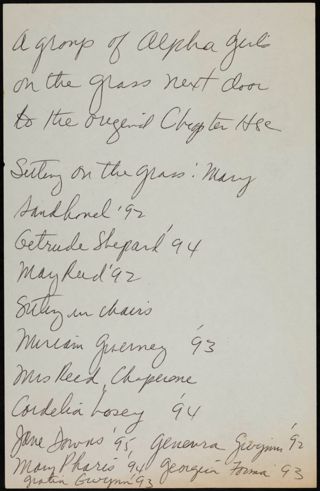 A group of Alpha girls
on the grass next door
to the original Chapter Hse
Sitting on the grass: Mary
'92
Getrude Shepard '94
May Reed '92
Sitting in chairs
Miriam Guerney '93
Mrs Reed, Chaperone
Cordelia Losey '94
Jane Downs '95 Genevra Gwynn '92
Mary Pharis '94 Georgia Forma '93
Gwynn '93